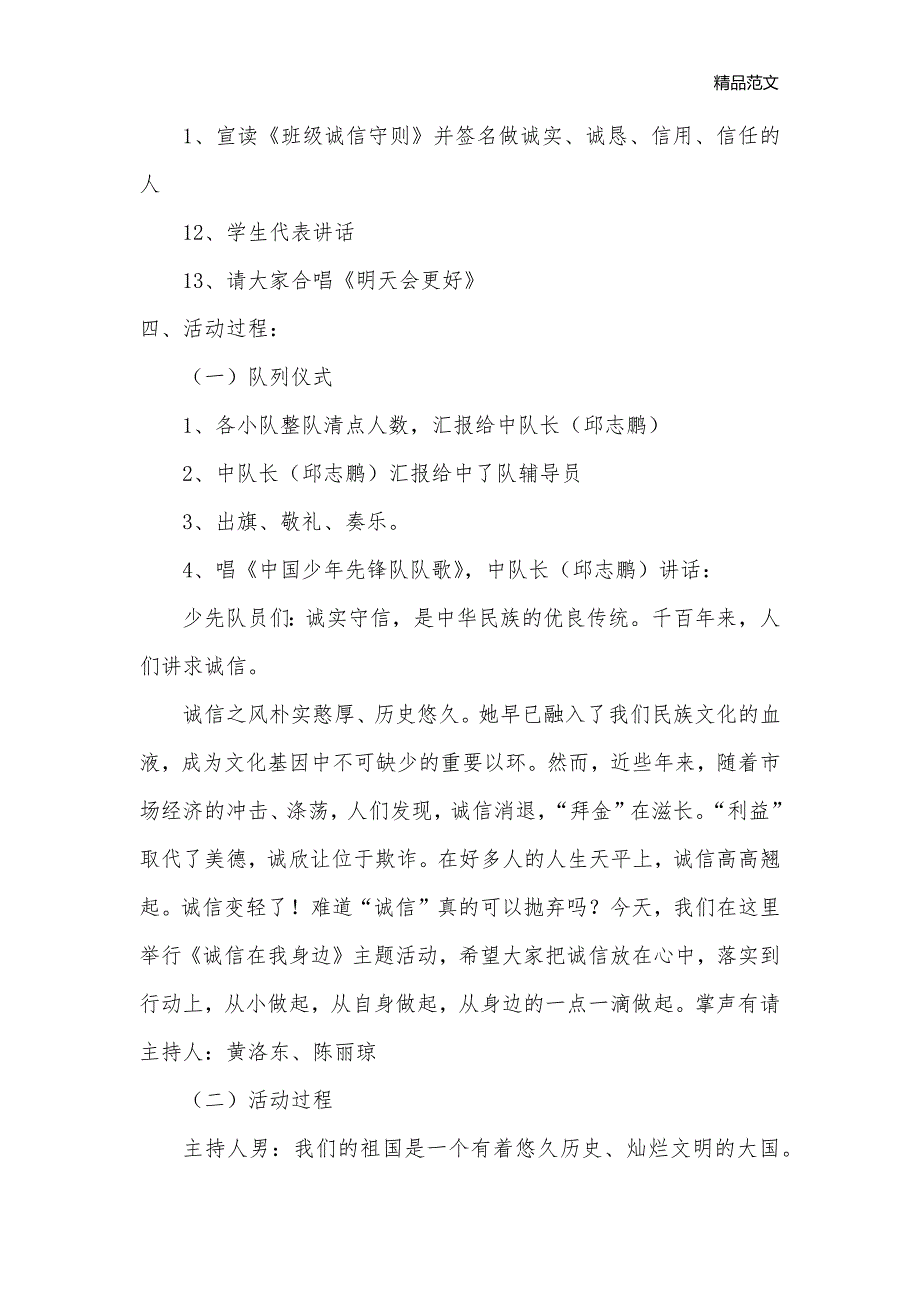 精品范文
1、宣读《班级诚信守则》并签名做诚实、诚恳、信用、信任的
人
12、学生代表讲话
13、请大家合唱《明天会更好》
四、活动过程：
（一）队列仪式
1、各小队整队清点人数，汇报给中队长（邱志鹏）
2、中队长（邱志鹏）汇报给中了队辅导员
3、出旗、敬礼、奏乐。
4、唱《中国少年先锋队队歌》，中队长（邱志鹏）讲话：
少先队员们：诚实守信，是中华民族的优良传统。千百年来，人
们讲求诚信。
诚信之风朴实憨厚、历史悠久。她早已融入了我们民族文化的血
液，成为文化基因中不可缺少的重要以环。然而，近些年来，随着市
场经济的冲击、涤荡，人们发现，诚信消退，“拜金”在滋长。“利益”
取代了美德，诚欣让位于欺诈。在好多人的人生天平上，诚信高高翘
起。诚信变轻了！难道“诚信”真的可以抛弃吗？今天，我们在这里
举行《诚信在我身边》主题活动，希望大家把诚信放在心中，落实到
行动上，从小做起，从自身做起，从身边的一点一滴做起。掌声有请
主持人：黄洛东、陈丽琼
（二）活动过程
主持人男：我们的祖国是一个有着悠久历史、灿烂文明的大国。